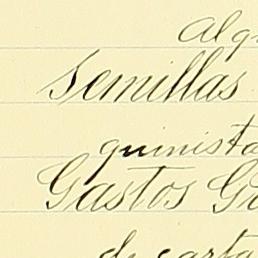 Alq
Semillas
quinista
Gastos G
de carta